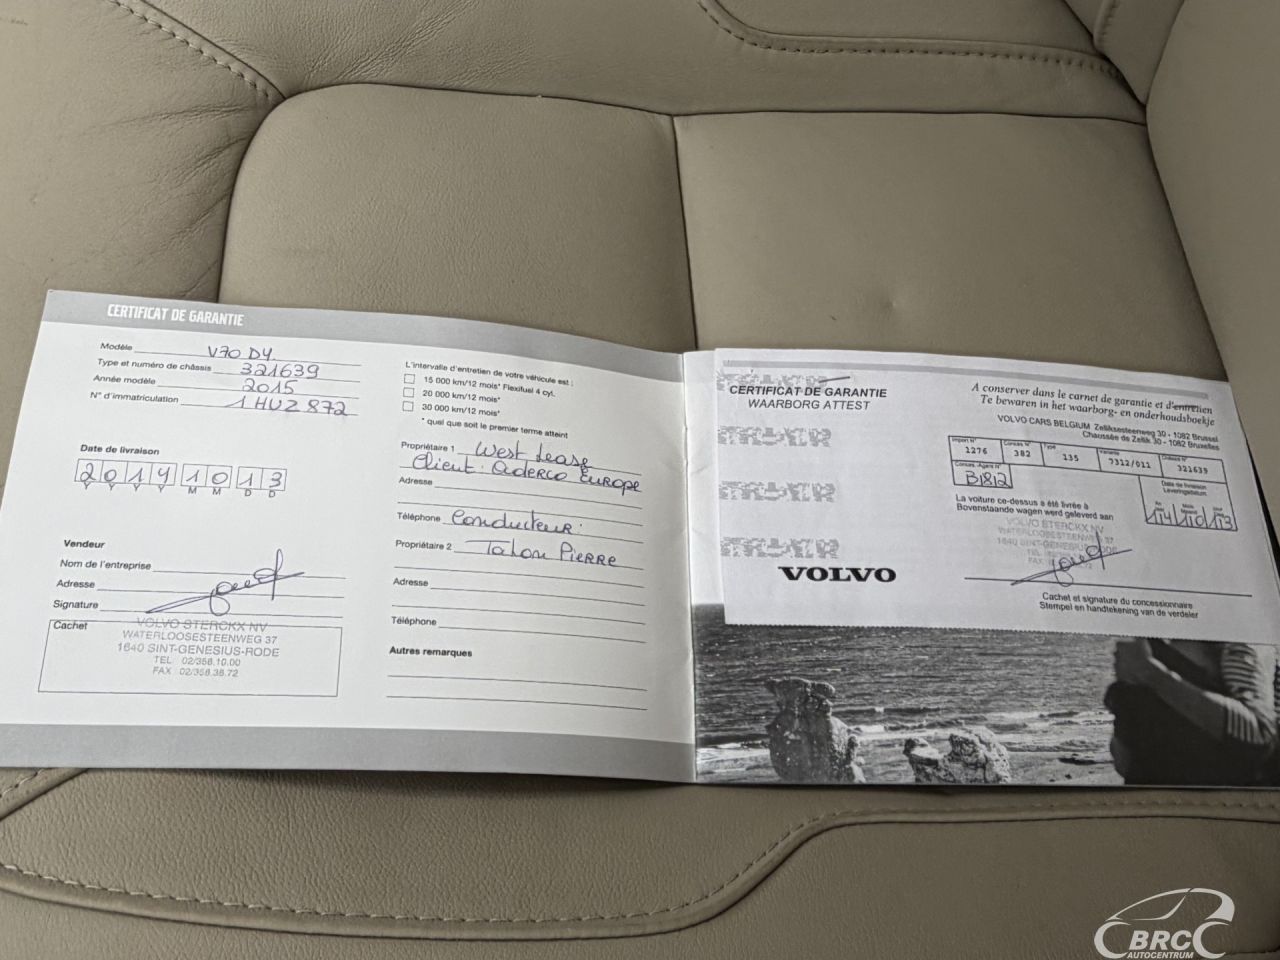 CERTIFICAT DE GARANTIE
Modèle V70 D4
Type et numéro de châssis 321639
Année modèle 2015
N° d'immatriculation 1 HUZ 872
Date de livraison
2 0 1 4 1 0 1 3
Y Y Y Y M M D D
Vendeur
Nom de l'entreprise
Adresse
Signature
Cachet
VOLVO STERCKX NV
WATERLOOSESTEENWEG 37
1640 SINT-GENESIUS-RODE
TEL 02/358.10.00
FAX 02/358.36.72
L'intervalle d'entretien de votre véhicule est :
15 000 km/12 mois* Flexifuel 4 cyl.
20 000 km/12 mois*
30 000 km/12 mois*
* quel que soit le premier terme atteint
Propriétaire 1 West Lease
Client: Aderco Europe
Adresse
Téléphone Conducteur:
Propriétaire 2 Talon Pierre
Adresse
Téléphone
Autres remarques
CERTIFICAT DE GARANTIE
WAARBORG ATTEST
VOLVO
A conserver dans le carnet de garantie et d'entretien
Te bewaren in het waarborg- en onderhoudsboekje
VOLVO CARS BELGIUM Zelliksesteenweg 30 - 1082 Brussel
Chaussée de Zellik 30 - 1082 Bruxelles
Import N° Conces. N° Type Variante Châssis N°
1276 382 135 7312/011 321639
Conces. Agent N°
B1812
Date de livraison
Leveringsdatum
14 10 13
La voiture ce-dessus a été livrée à
Bovenstaande wagen werd geleverd aan
VOLVO STERCKX NV
WATERLOOSESTEENWEG 37
1640 SINT-GENESIUS-RODE
Cachet et signature du concessionnaire
Stempel en handtekening van de verdeler
BRC
AUTOCENTRUM